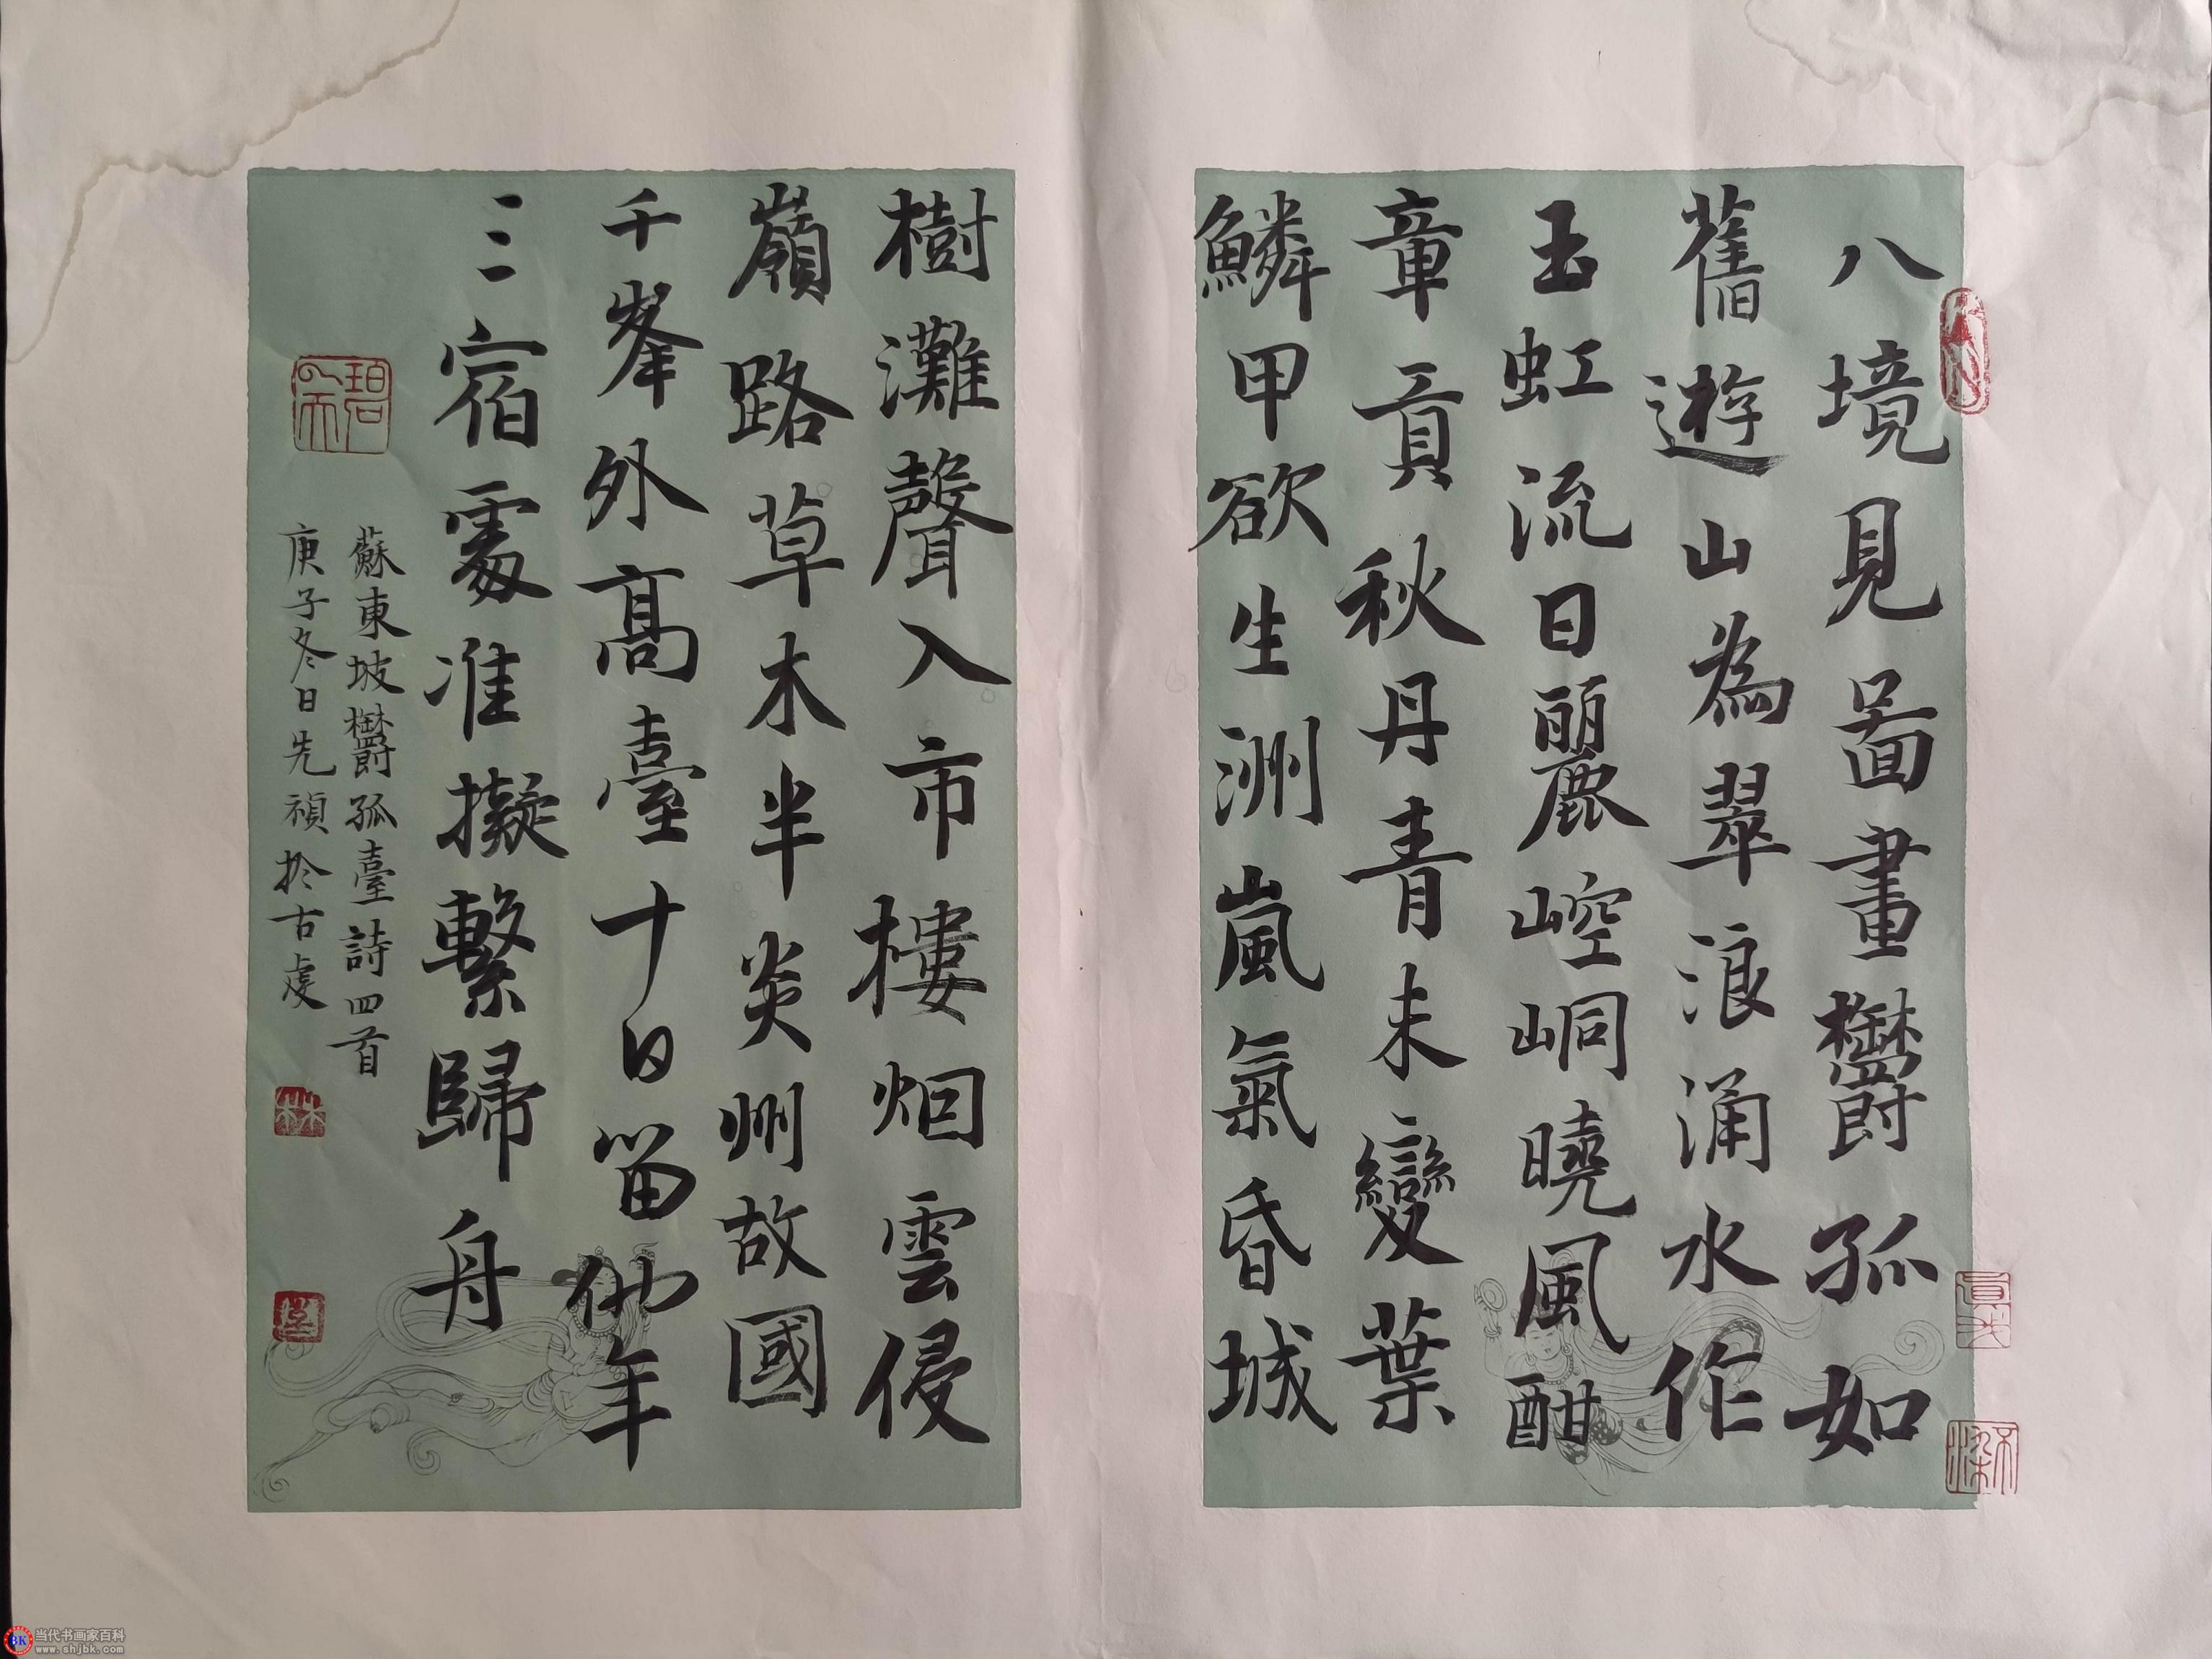 八境見啚畫鬱孤如
舊遊山為翠浪涌水作
玉虹流日麗崆峒曉風酣
章貢秋丹青未變葉
鱗甲欲生洲嵐氣昏城
樹灘聲入市樓烟雲侵
嶺路草木半炎州故國
千峯外高臺十日留他年
三宿處准擬繫歸舟
蘇東坡鬱孤臺詩四首
庚子冬日先禎於古虔
碧
林
BK 当代书画家百科
www.shjbk.com